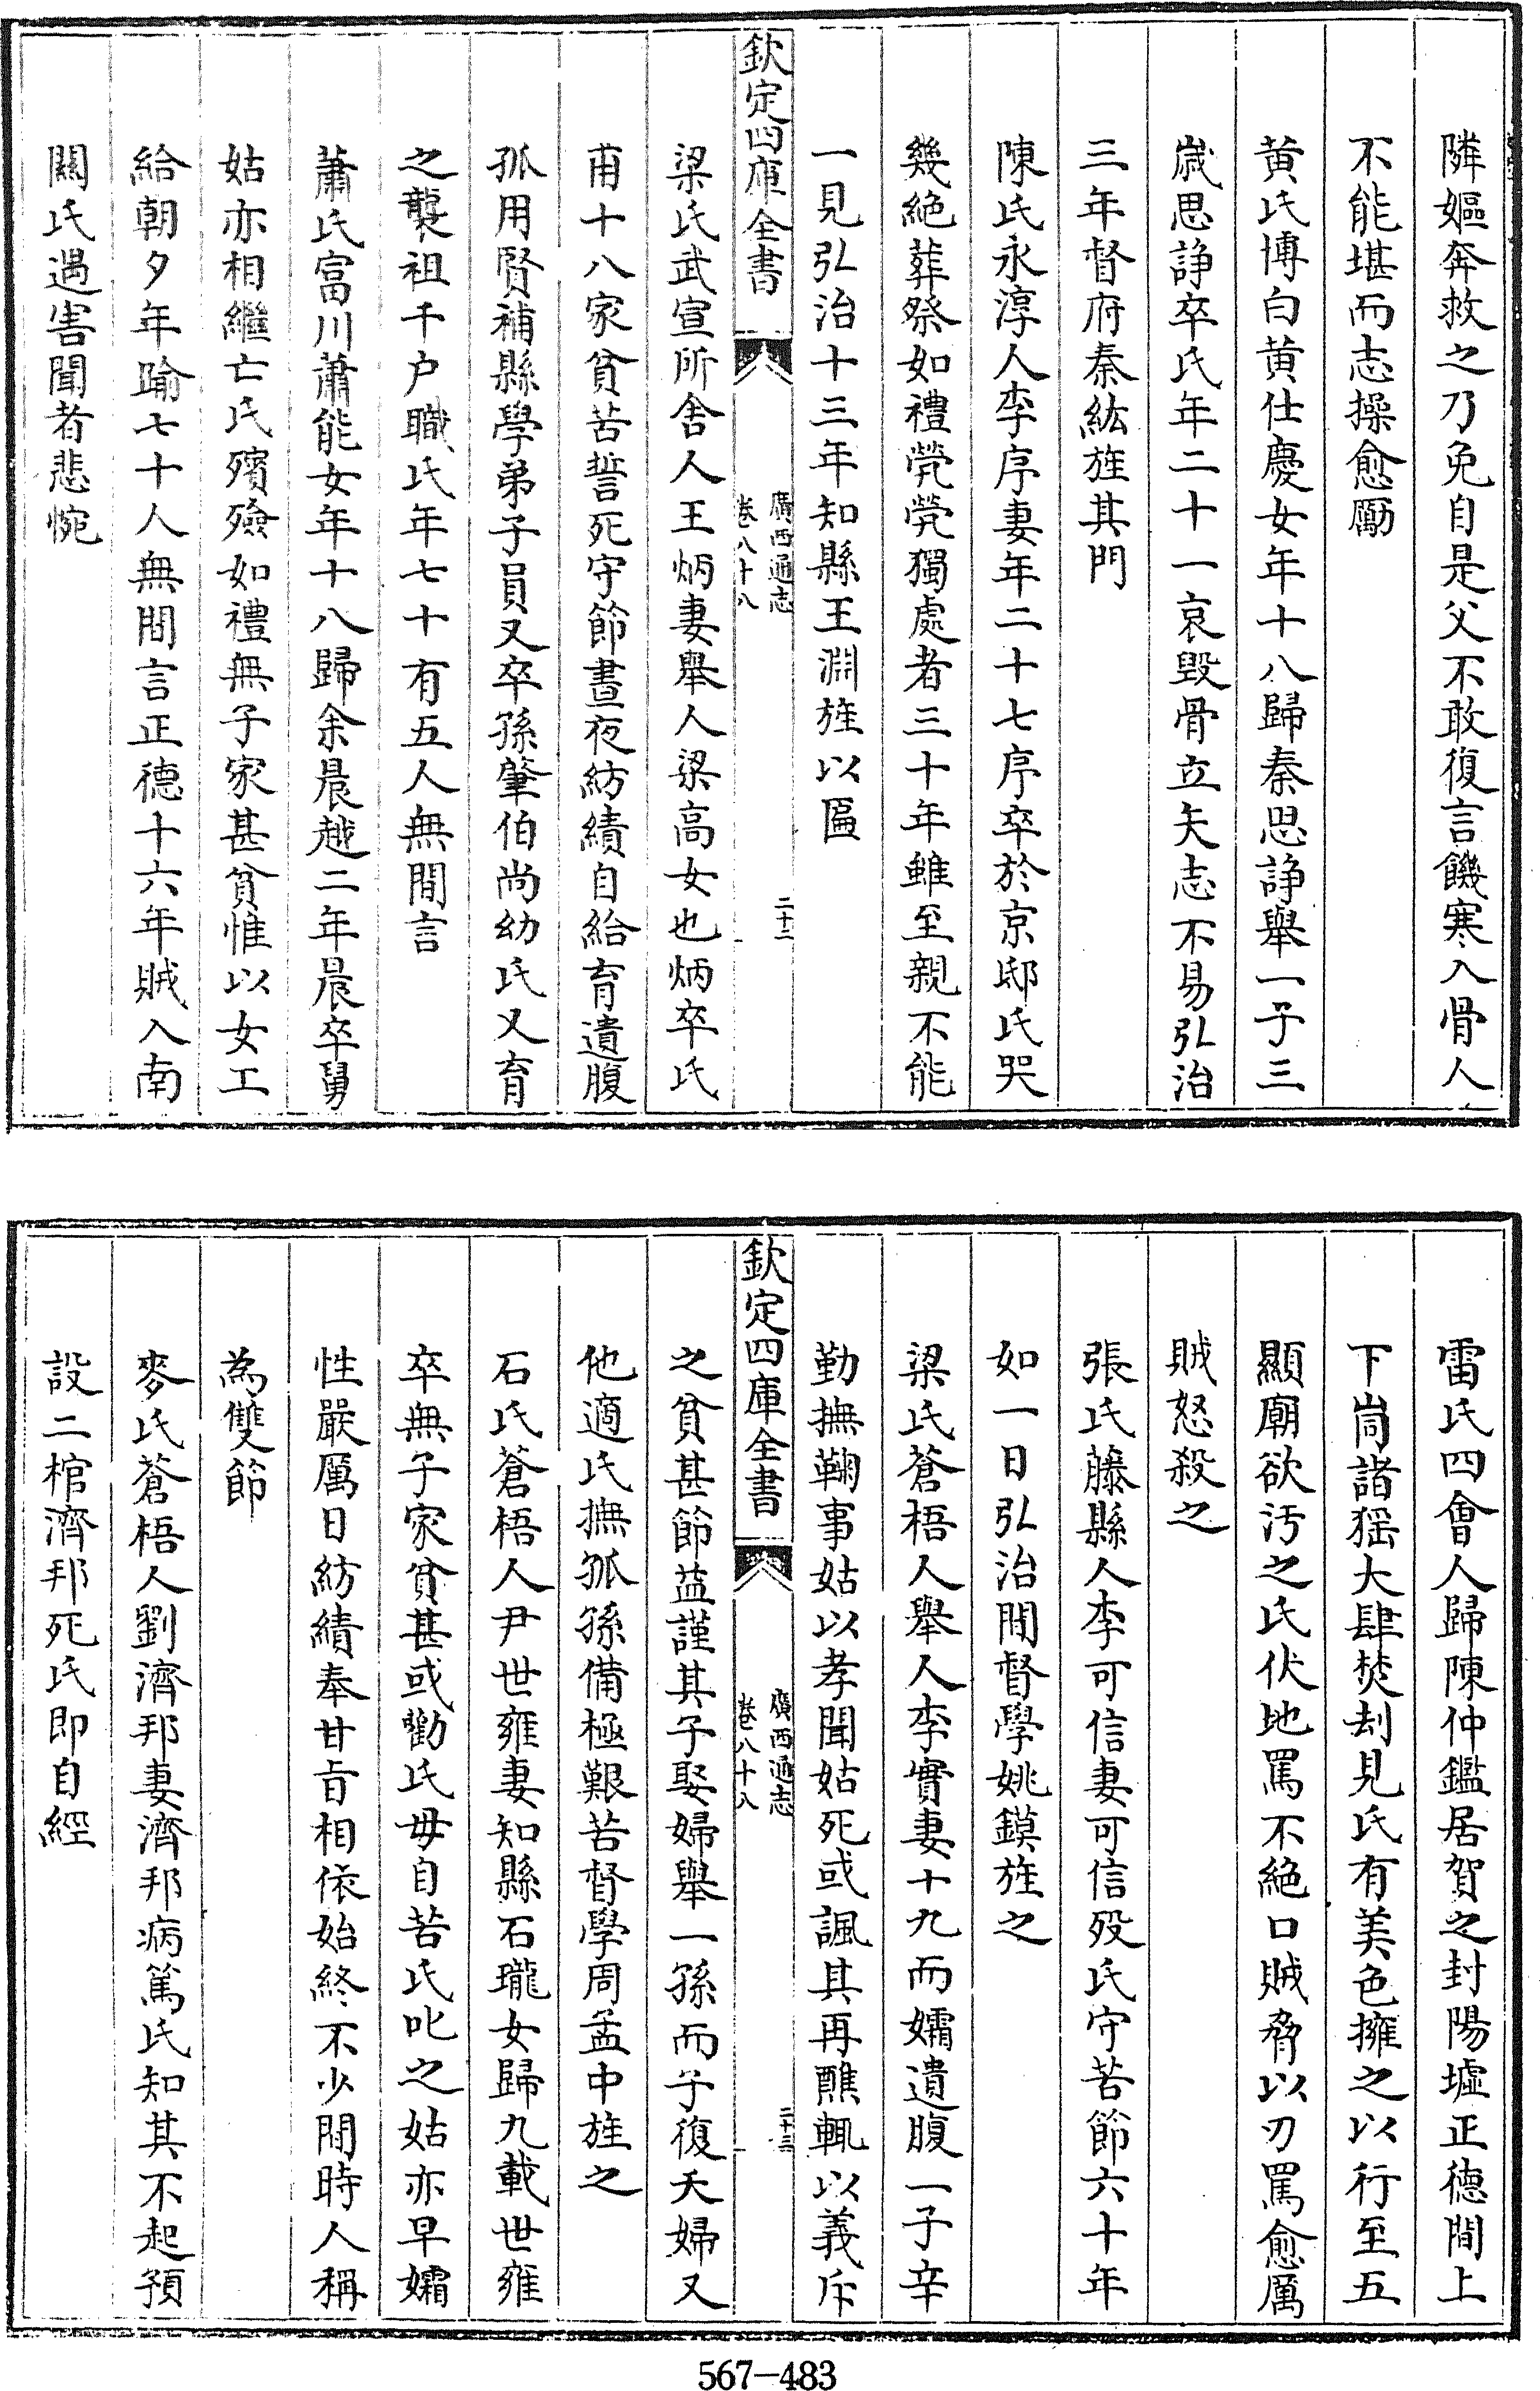 隣嫗奔救之乃免自是父不敢復言饑寒入骨人
不能堪而志操愈勵
黄氏博白黄仕慶女年十八歸秦思諍舉一子三
歳思諍卒氏年二十一哀毀骨立矢志不易弘治
三年督府秦紘旌其門
陳氏永淳人李序妻年二十七序卒於京邸氏哭
幾絶葬祭如禮煢煢獨處者三十年雖至親不能
一見弘治十三年知縣王淵旌以匾
欽定四庫全書
廣西通志
卷八十八
二十二
梁氏武宣所舍人王炳妻舉人梁高女也炳卒氏
甫十八家貧苦誓死守節晝夜紡績自給育遺腹
孤用賢補縣學弟子員又卒孫肇伯尚幼氏又育
之襲祖千户職氏年七十有五人無間言
蕭氏富川蕭能女年十八歸余晨越二年晨卒舅
姑亦相繼亡氏殯殮如禮無子家甚貧惟以女工
給朝夕年踰七十人無間言正德十六年賊入南
闗氏遇害聞者悲惋
雷氏四會人歸陳仲鑑居賀之封陽墟正德間上
下峝諸猺大肆焚刦見氏有美色擁之以行至五
顯廟欲汚之氏伏地罵不絶口賊脅以刃罵愈厲
賊怒殺之
張氏藤縣人李可信妻可信殁氏守苦節六十年
如一日弘治間督學姚鏌旌之
梁氏蒼梧人舉人李實妻十九而孀遺腹一子辛
勤撫鞠事姑以孝聞姑死或諷其再醮輒以義斥
欽定四庫全書
廣西通志
卷八十八
二十三
之貧甚節益謹其子娶婦舉一孫而子復夭婦又
他適氏撫孤孫備極艱苦督學周孟中旌之
石氏蒼梧人尹世雍妻知縣石瓏女歸九載世雍
卒無子家貧甚或勸氏毋自苦氏叱之姑亦早孀
性嚴厲日紡績奉甘旨相依始終不少間時人稱
為雙節
麥氏蒼梧人劉濟邦妻濟邦病篤氏知其不起預
設二棺濟邦死氏即自經
567-483